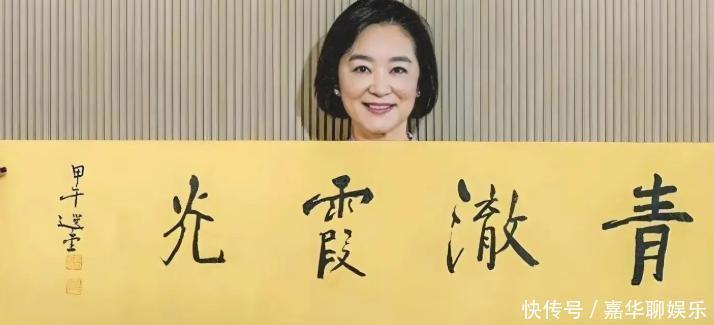 青澈霞光
甲午選堂
快传号 / 嘉华聊娱乐